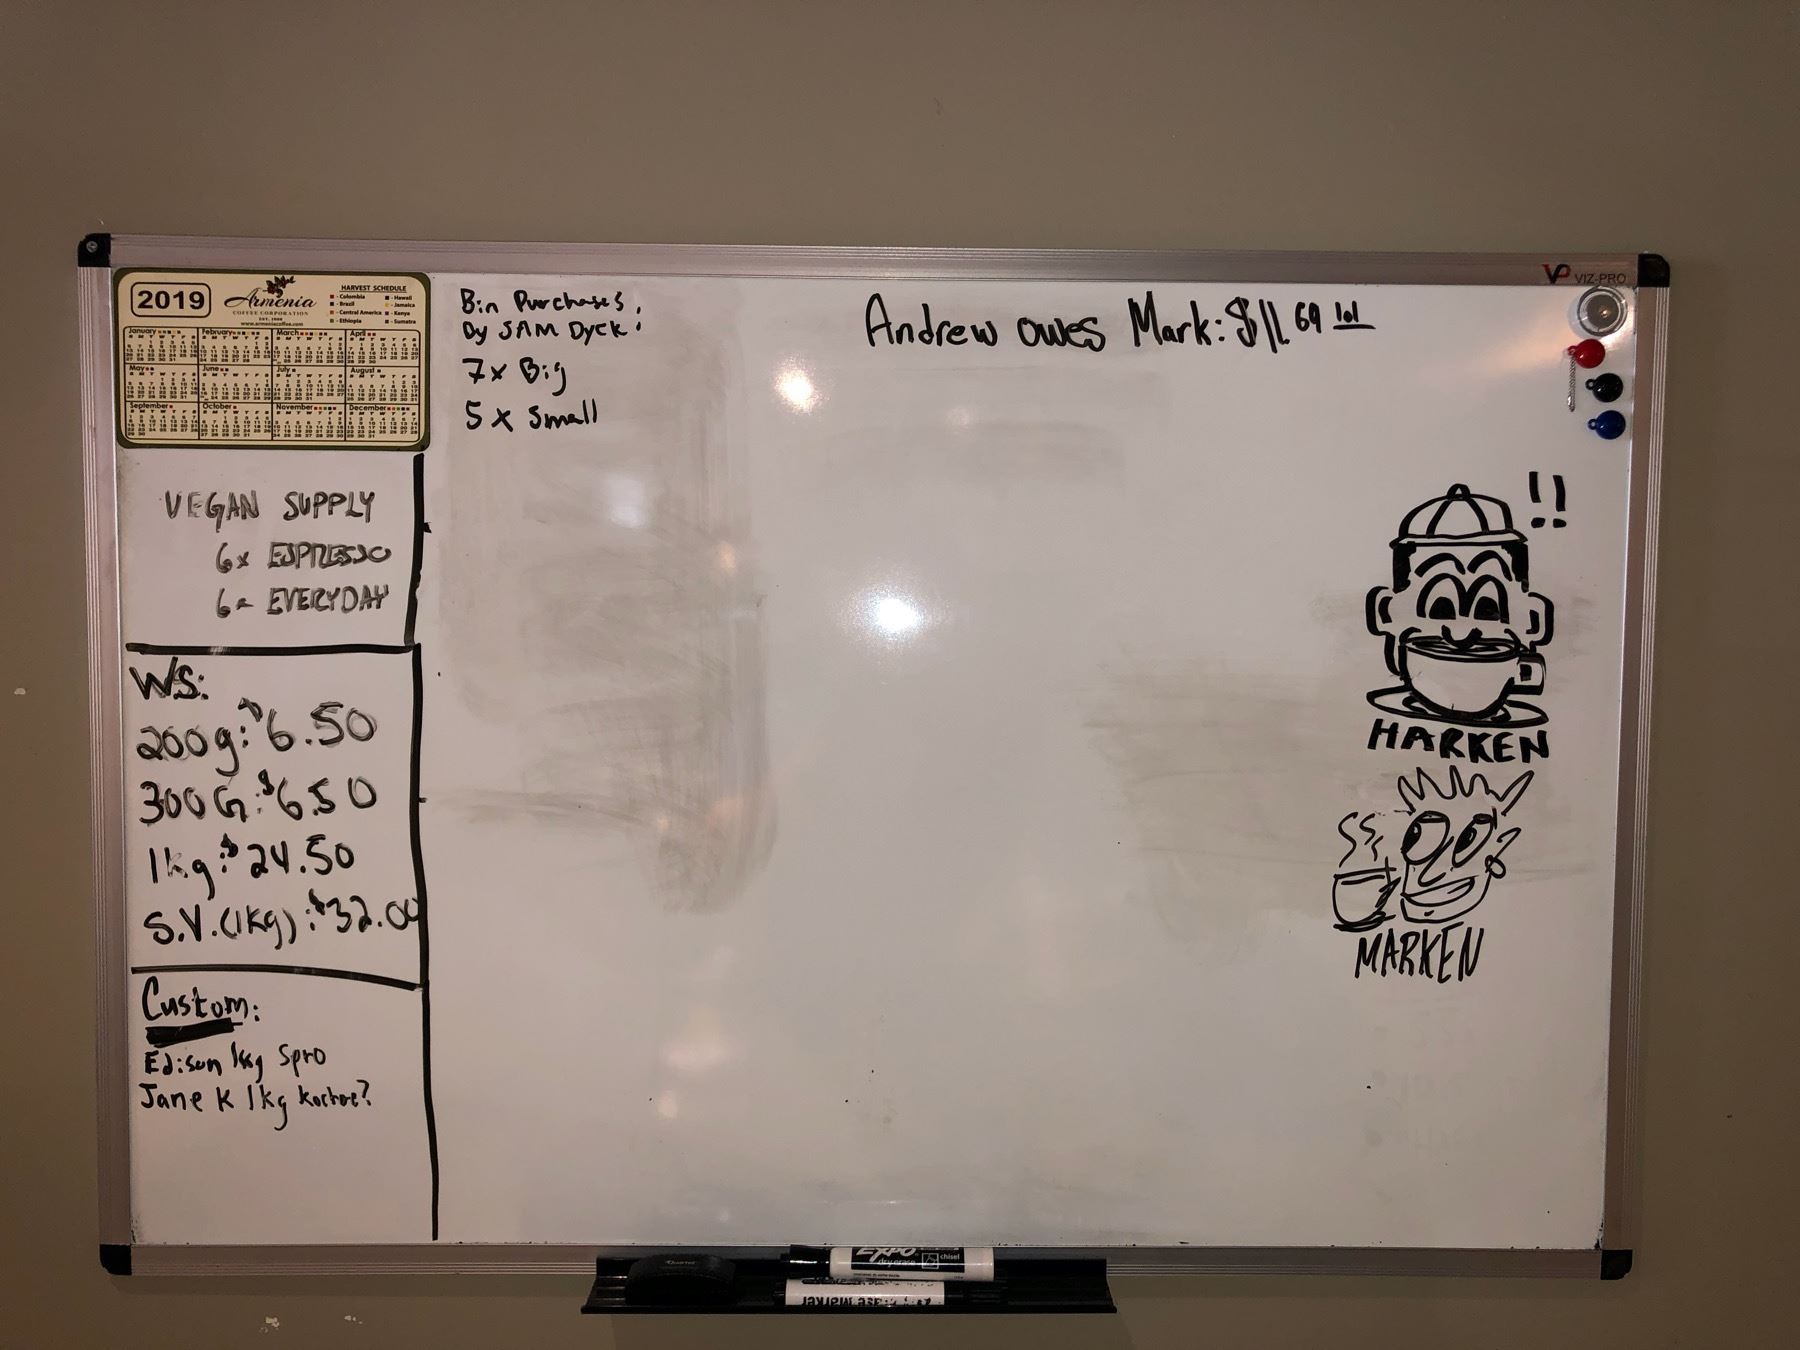 2019
Armenia
COFFEE CORPORATION
EST. 1998
www.armeniacoffee.com
HARVEST SCHEDULE
Colombia
Brazil
Central America
Ethiopia
Hawaii
Jamaica
Kenya
Sumatra
January
February
March
April
May
June
July
August
September
October
November
December
VEGAN SUPPLY
6x ESPRESSO
6x EVERYDAY
WS:
200g: $6.50
300G: $6.50
1kg: $24.50
S.V. (1kg): $32.00
Custom:
Edison 1kg Spro
Jane K 1kg
Bin Purchases
By SAM Dyck:
7x Big
5 x Small
Andrew owes Mark: $11.69 lol
VP VIZ-PRO
!!
HARKEN
MARKEN
EXPO
dry erase
chisel